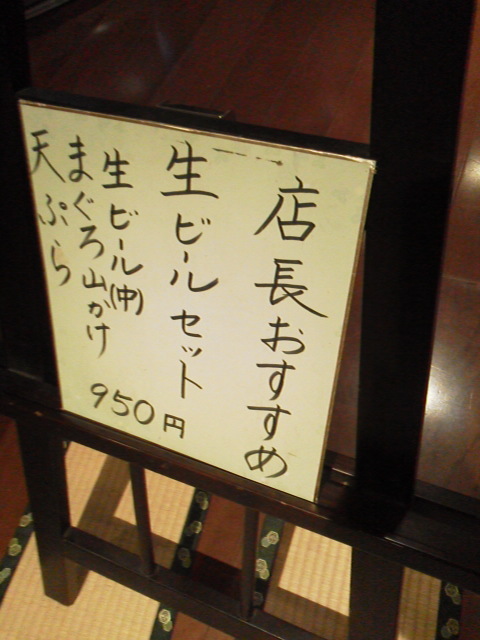 店長おすすめ
生ビールセット
生ビール(中)
まぐろ山かけ
天ぷら
950円